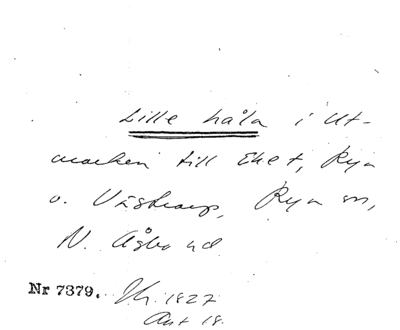 Lille håla i Ut-
marken till Eket, Rya
o. Västrarp, Rya sn,
N. Åsbo hd.
Nr 7379. 1827
Akt 18.